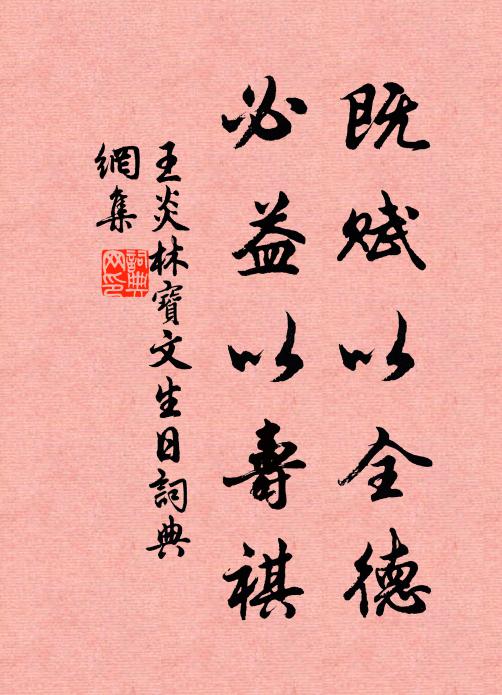 既赋以全德
必益以壽祺
王炎林寶文生日詞典
網集
詞典網印